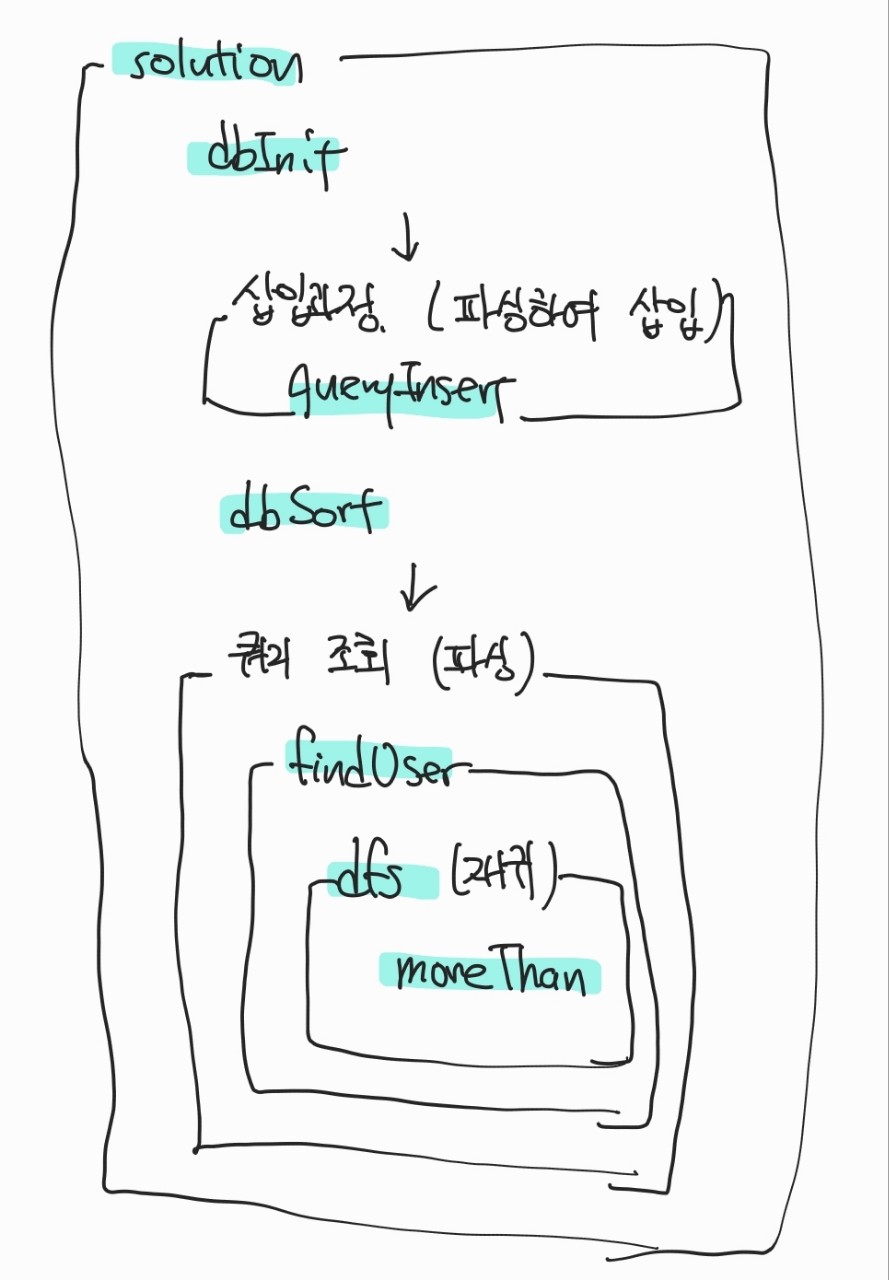 solution
dbInit
삽입과정. (파싱하여 삽입)
queryInsert
dbSort
쿼리 조회 (파싱)
findUser
dfs (재귀)
moreThan